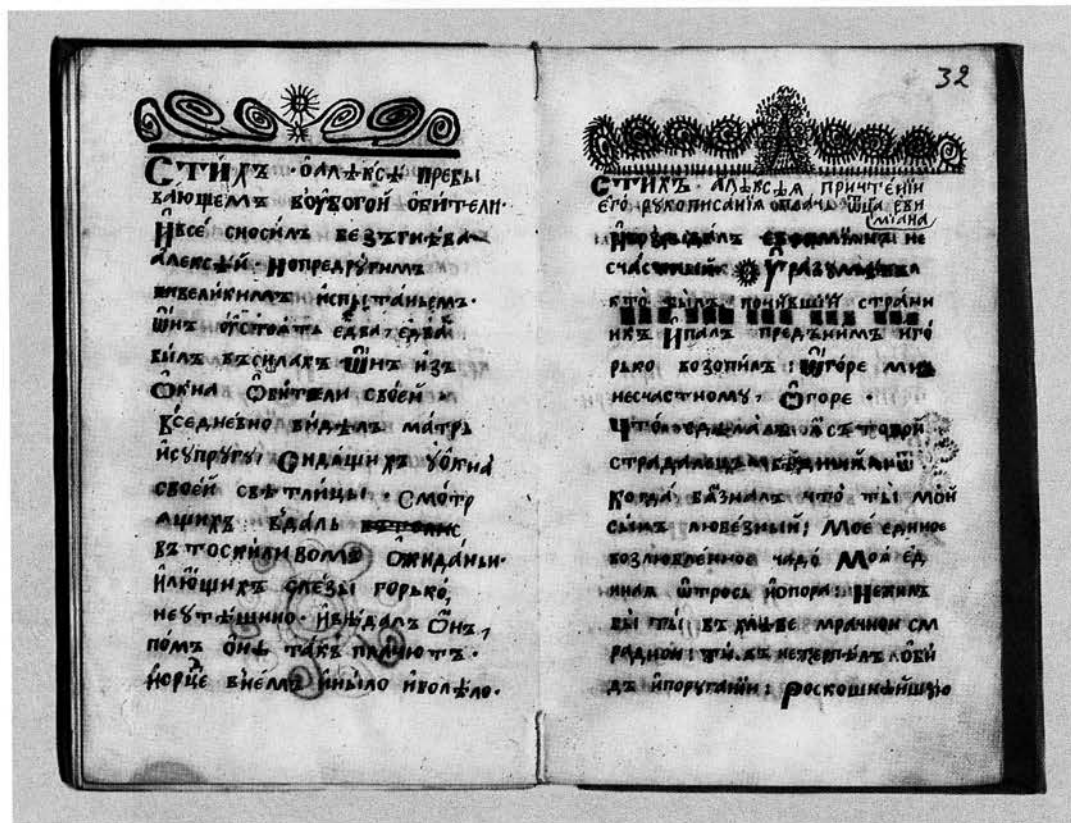 Сти́хъ · о҆алѣѯѣ̀ пребы
ва́ющемъ воу҆бо́гой о҆би́тели ·
И҆всѐ сноси́лъ безъгнѣ́ва
але́ксѣй · Нопредъ
вели́кимъ и҆спыта́ньемъ ·
Ѻ҆нъ едва̀, едва̀
бы́лъ въси́лахъ Ѻ҆нъ и҆зъ
О҆кна̀ О҆би́тели свое́й
Вседне́вно ви́дѣлъ ма́трь
и҆супру́гу, Сидѧ́щихъ уо҆кна̀
свое́й свѣтли́цы · Смотр
ѧщихъ въда́ль
въ тоскли́вомъ О҆жида́ньи ·
И҆лїю́щихъ сле́зы го́рько,
неутѣ́шно · И҆вѣ́далъ О҆нъ,
о҆нѣ̀ та́къ пла́чютъ ·
вне́мъ и҆ны́ло и҆болѣ́ло ·
32
Сти́хъ · Алѣѯѣ́ѧ причте́нїи
его́ рукописа́нїѧ опла́чь Ѿца̀ еѵи
мїа́на
не
сча́стный
кто̀ бы́лъ почи́вшїй стра́нн
икъ И҆па́лъ предъни́мъ иго́
рько возопи́лъ : Ѽго́ре мнѣ
несча́стному, Ѽгоре ·
Что̀ ѧ҆съ тобо́й
страда́лецъ
Когда̀ бъ ѧ҆зна́лъ что̀ ты̀ мо́й
сы́нъ любе́зный; Моѐ еди́ное
возлю́бле́нное ча́до Моѧ̀ ед
инаѧ ѻ҆́трось и҆опо́ра : Нежи́лъ
бы ты̀ въ хлѣ́ве мра́чном см
ра́дном :
дъ и҆поруга́нїи : Роскошнѣ́йшую